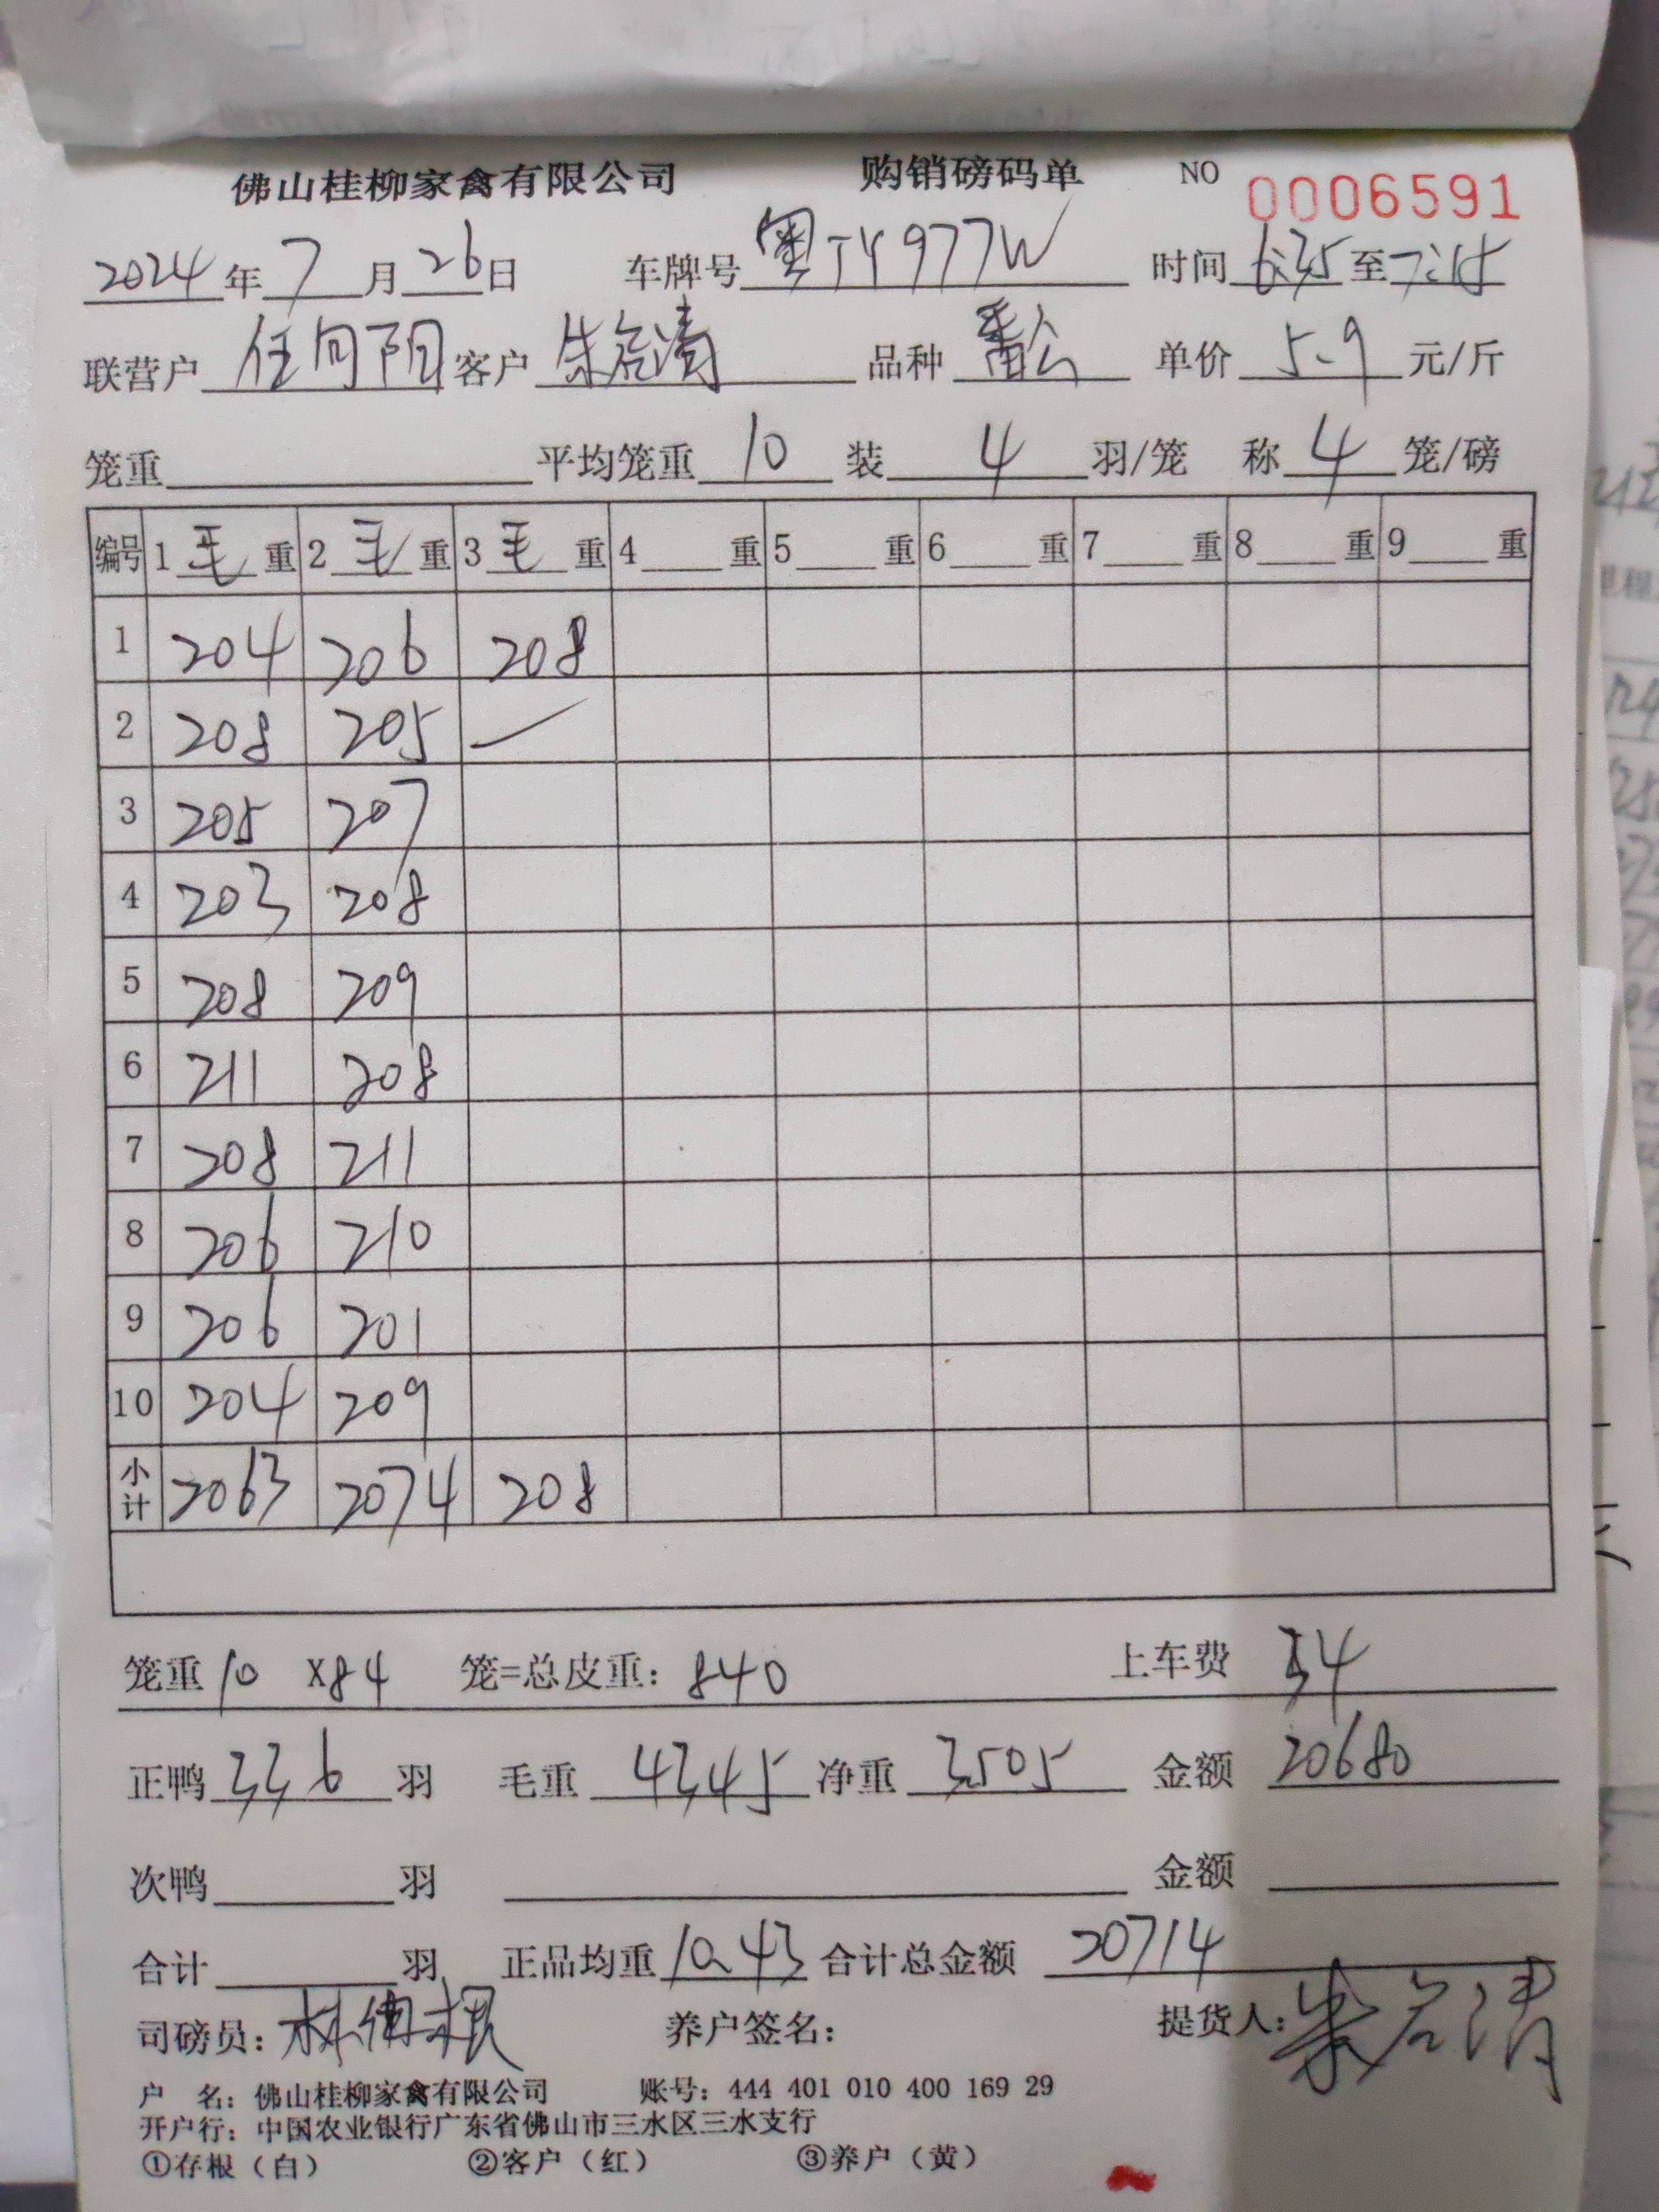 佛山桂柳家禽有限公司 购销磅码单 NO 0006591
2024年7月26日 车牌号 粤JY977W 时间 6:35至7:15
联营户 任向阳 客户 朱启清 品种 番公 单价 5.9 元/斤
笼重 平均笼重 10 装 4 羽/笼 称 4 笼/磅
编号 1毛重 2毛重 3毛重 4重 5重 6重 7重 8重 9重
1 204 206 208
2 208 205 —
3 205 207
4 203 208
5 208 209
6 211 208
7 208 211
8 206 210
9 206 201
10 204 209
小计 2063 2074 208
笼重 10 X84 笼=总皮重: 840 上车费 34
正鸭 336 羽 毛重 4345 净重 3505 金额 20680
次鸭 羽 金额
合计 羽 正品均重 10.43 合计总金额 20714
司磅员: 养户签名: 提货人: 朱启清
户 名: 佛山桂柳家禽有限公司 账号: 444 401 010 400 169 29
开户行: 中国农业银行广东省佛山市三水区三水支行
①存根（白） ②客户（红） ③养户（黄）